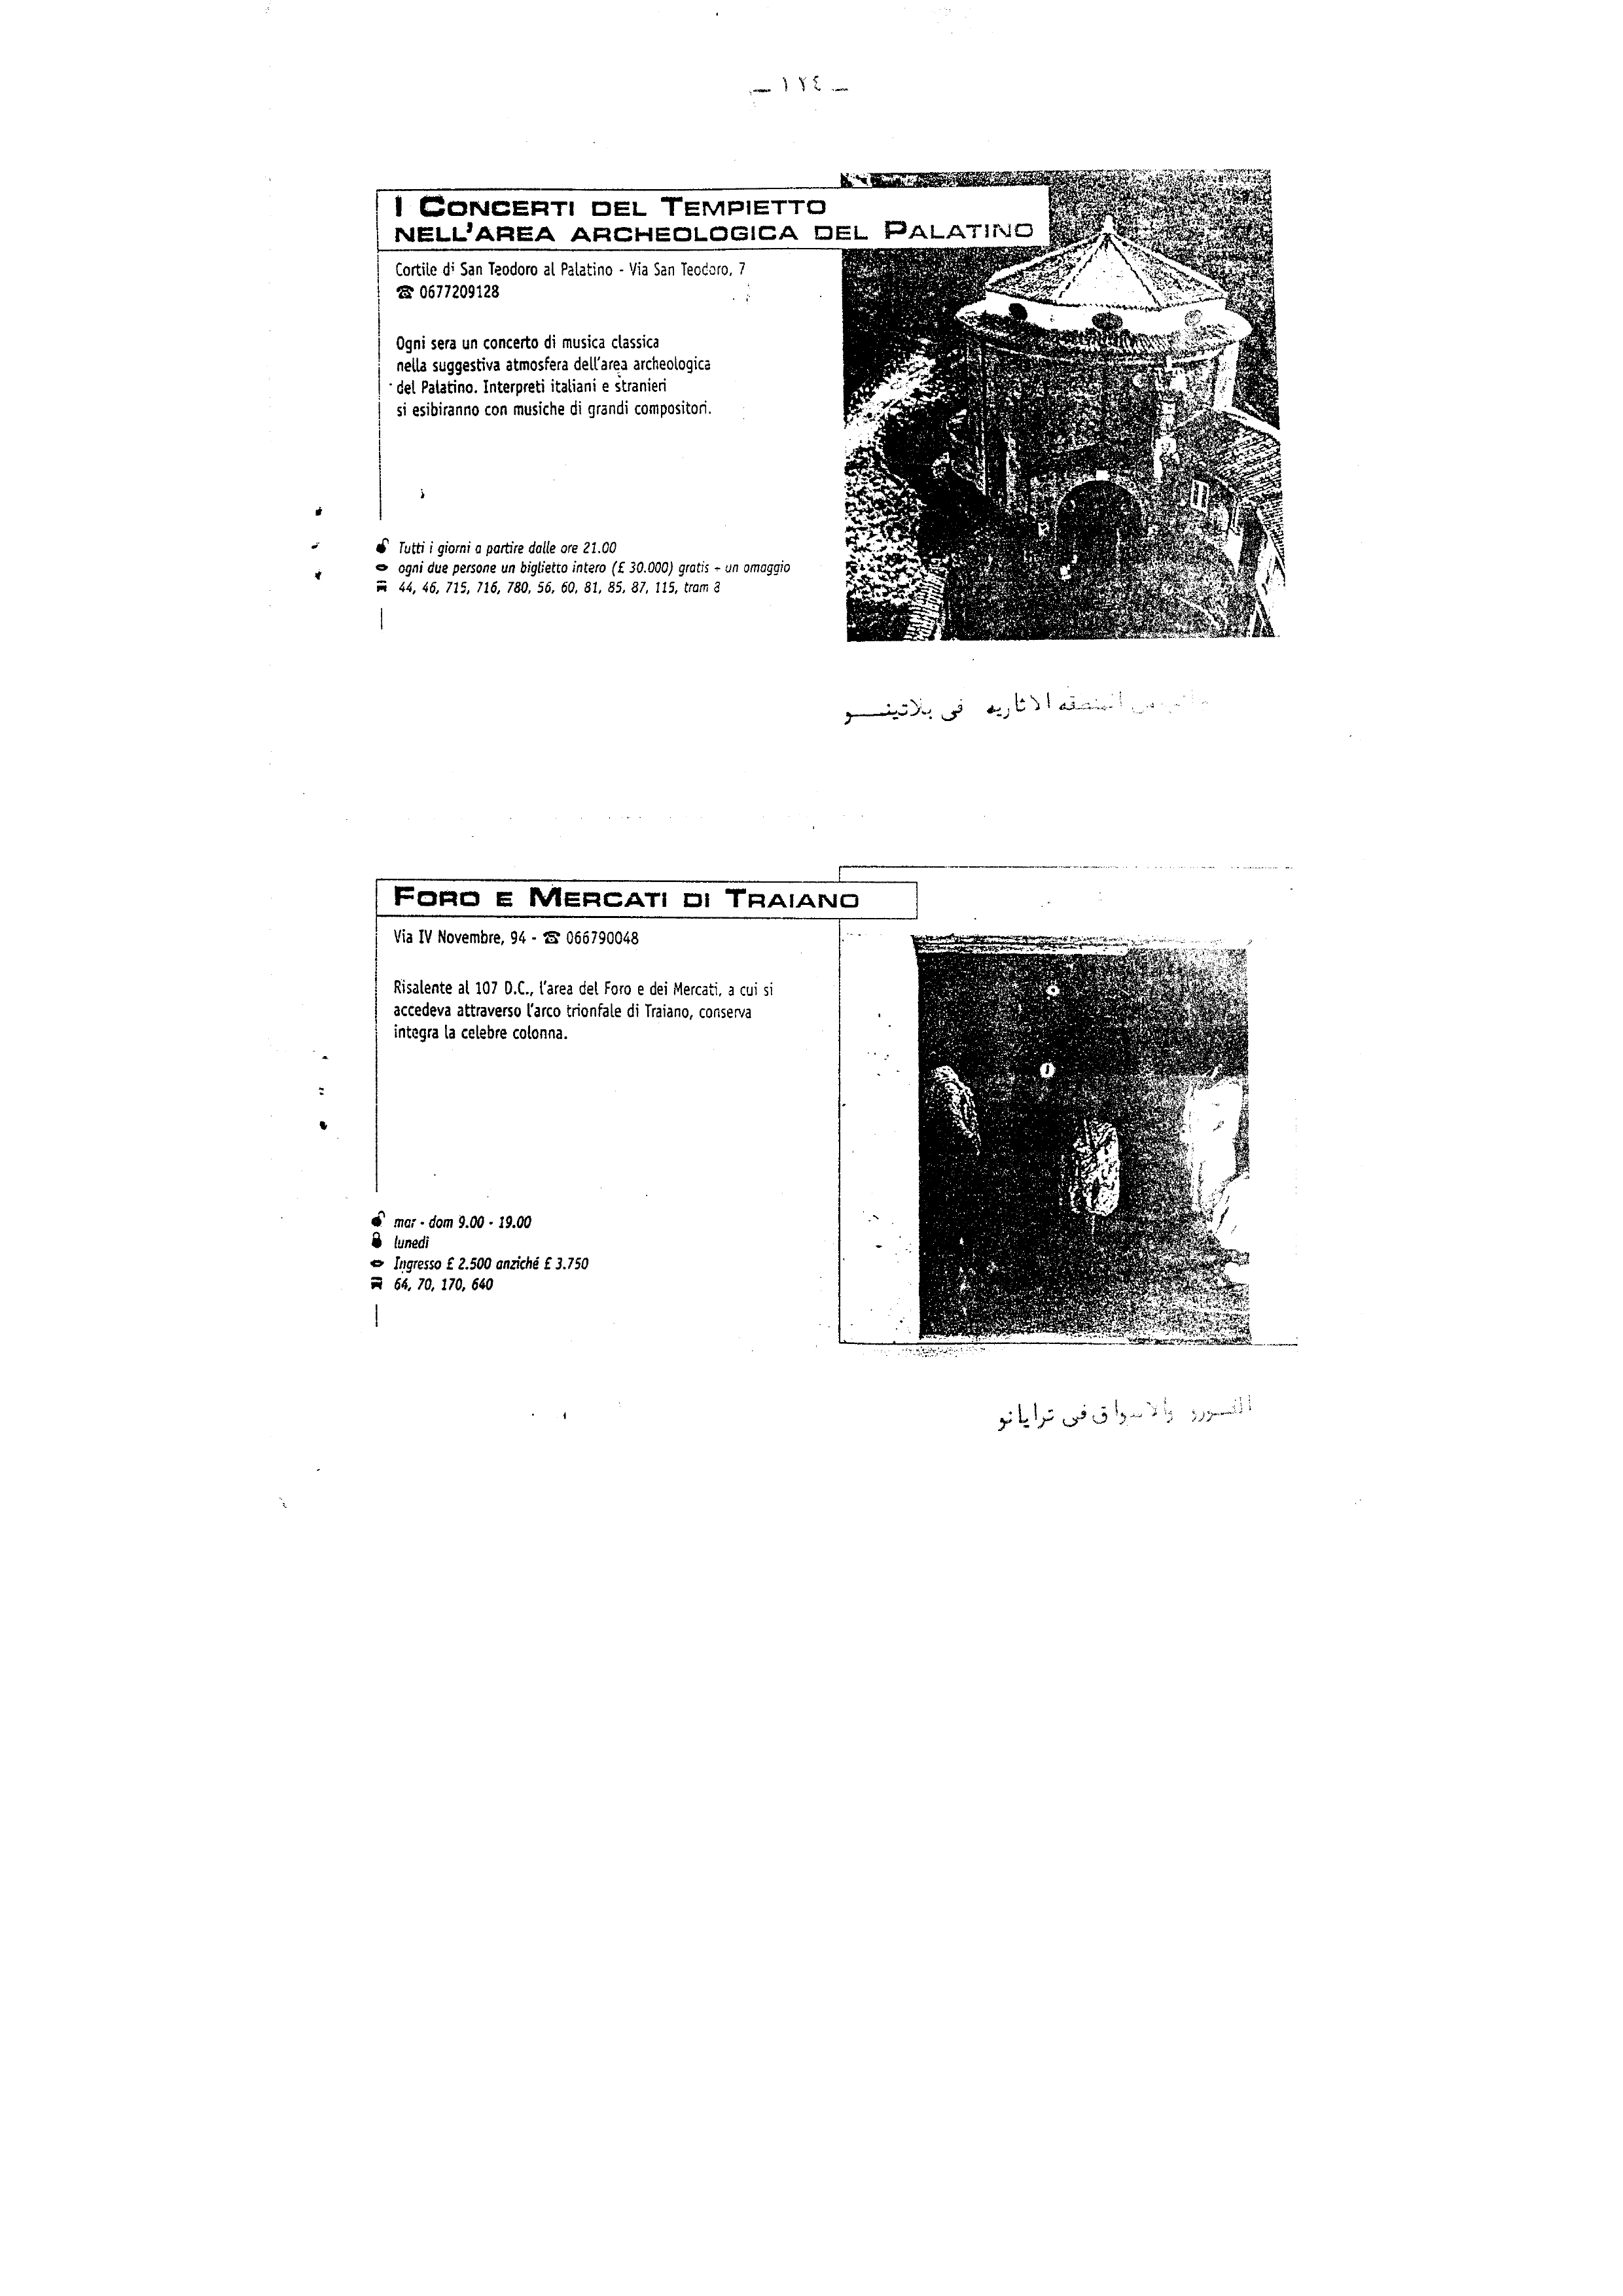 — ١٢٤ —
I CONCERTI DEL TEMPIETTO
NELL'AREA ARCHEOLOGICA DEL PALATINO
Cortile di San Teodoro al Palatino - Via San Teodoro, 7
☎ 0677209128
Ogni sera un concerto di musica classica
nella suggestiva atmosfera dell'area archeologica
del Palatino. Interpreti italiani e stranieri
si esibiranno con musiche di grandi compositori.
Tutti i giorni a partire dalle ore 21.00
ogni due persone un biglietto intero (£ 30.000) gratis + un omaggio
44, 46, 715, 716, 780, 56, 60, 81, 85, 87, 115, tram 8
المنطقه الاثاريه في بلاتينـــو
FORO E MERCATI DI TRAIANO
Via IV Novembre, 94 - ☎ 066790048
Risalente al 107 D.C., l'area del Foro e dei Mercati, a cui si
accedeva attraverso l'arco trionfale di Traiano, conserva
integra la celebre colonna.
mar - dom 9.00 - 19.00
lunedì
Ingresso £ 2.500 anziché £ 3.750
64, 70, 170, 640
الفـورو والاسواق في ترايانو